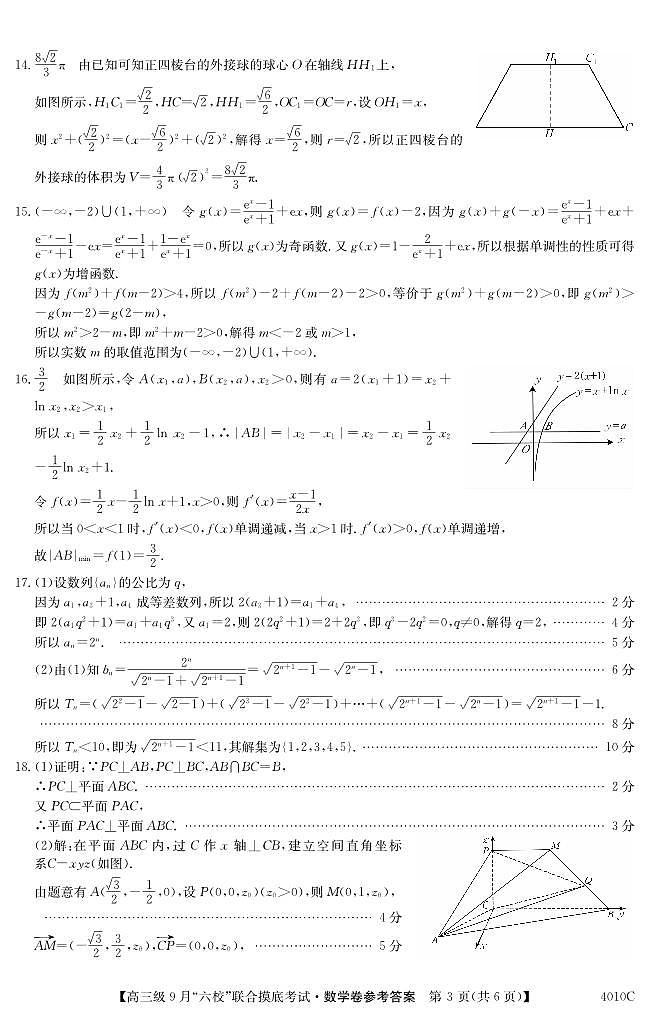 14. 8√2/3 π 由已知可知正四棱台的外接球的球心O在轴线HH₁上,
如图所示,H₁C₁=√2/2,HC=√2,HH₁=√6/2,OC₁=OC=r,设OH₁=x,
则x²+(√2/2)²=(x-√6/2)²+(√2)²,解得x=√6/2,则r=√2,所以正四棱台的
外接球的体积为V=4/3 π(√2)²=8√2/3 π.
H₁ C₁
H C
15. (-∞,-2)∪(1,+∞) 令g(x)=(eˣ-1)/(eˣ+1)+ex,则g(x)=f(x)-2,因为g(x)+g(-x)=(eˣ-1)/(eˣ+1)+ex+
(e⁻ˣ-1)/(e⁻ˣ+1)-ex=(eˣ-1)/(eˣ+1)+(1-eˣ)/(eˣ+1)=0,所以g(x)为奇函数.又g(x)=1-2/(eˣ+1)+ex,所以根据单调性的性质可得
g(x)为增函数.
因为f(m²)+f(m-2)>4,所以f(m²)-2+f(m-2)-2>0,等价于g(m²)+g(m-2)>0,即g(m²)>
-g(m-2)=g(2-m),
所以m²>2-m,即m²+m-2>0,解得m<-2或m>1,
所以实数m的取值范围为(-∞,-2)∪(1,+∞).
16. 3/2 如图所示,令A(x₁,a),B(x₂,a),x₂>0,则有a=2(x₁+1)=x₂+
ln x₂,x₂>x₁,
所以x₁=1/2 x₂+1/2 ln x₂-1,∴|AB|=|x₂-x₁|=x₂-x₁=1/2 x₂
-1/2 ln x₂+1.
令f(x)=1/2 x-1/2 ln x+1,x>0,则f′(x)=(x-1)/2x,
所以当0<x<1时,f′(x)<0,f(x)单调递减,当x>1时.f′(x)>0,f(x)单调递增,
故|AB|min=f(1)=3/2.
y y=2(x+1)
y=x+ln x
A B y=a
O x
17. (1)设数列{aₙ}的公比为q,
因为a₁,a₂+1,a₄成等差数列,所以2(a₃+1)=a₁+a₄, …… 2分
即2(a₁q²+1)=a₁+a₁q³,又a₁=2,则2(2q²+1)=2+2q³,即q³-2q²=0,q≠0,解得q=2, …… 4分
所以aₙ=2ⁿ. …… 5分
(2)由(1)知bₙ=2ⁿ/(√(2ⁿ-1)+√(2ⁿ⁺¹-1))=√(2ⁿ⁺¹-1)-√(2ⁿ-1), …… 6分
所以Tₙ=(√(2²-1)-√(2-1))+(√(2³-1)-√(2²-1))+…+(√(2ⁿ⁺¹-1)-√(2ⁿ-1))=√(2ⁿ⁺¹-1)-1.
…… 8分
所以Tₙ<10,即为√(2ⁿ⁺¹-1)<11,其解集为{1,2,3,4,5}. …… 10分
18. (1)证明:∵PC⊥AB,PC⊥BC,AB∩BC=B,
∴PC⊥平面ABC. …… 2分
又PC⊂平面PAC,
∴平面PAC⊥平面ABC. …… 3分
(2)解:在平面ABC内,过C作x轴⊥CB,建立空间直角坐标
系C-xyz(如图).
由题意有A(√3/2,-1/2,0),设P(0,0,z₀)(z₀>0),则M(0,1,z₀),
…… 4分
AM=(-√3/2,3/2,z₀),CP=(0,0,z₀), …… 5分
z
P M
Q
C B y
A
x
【高三级9月“六校”联合摸底考试·数学卷参考答案 第3页(共6页)】 4010C